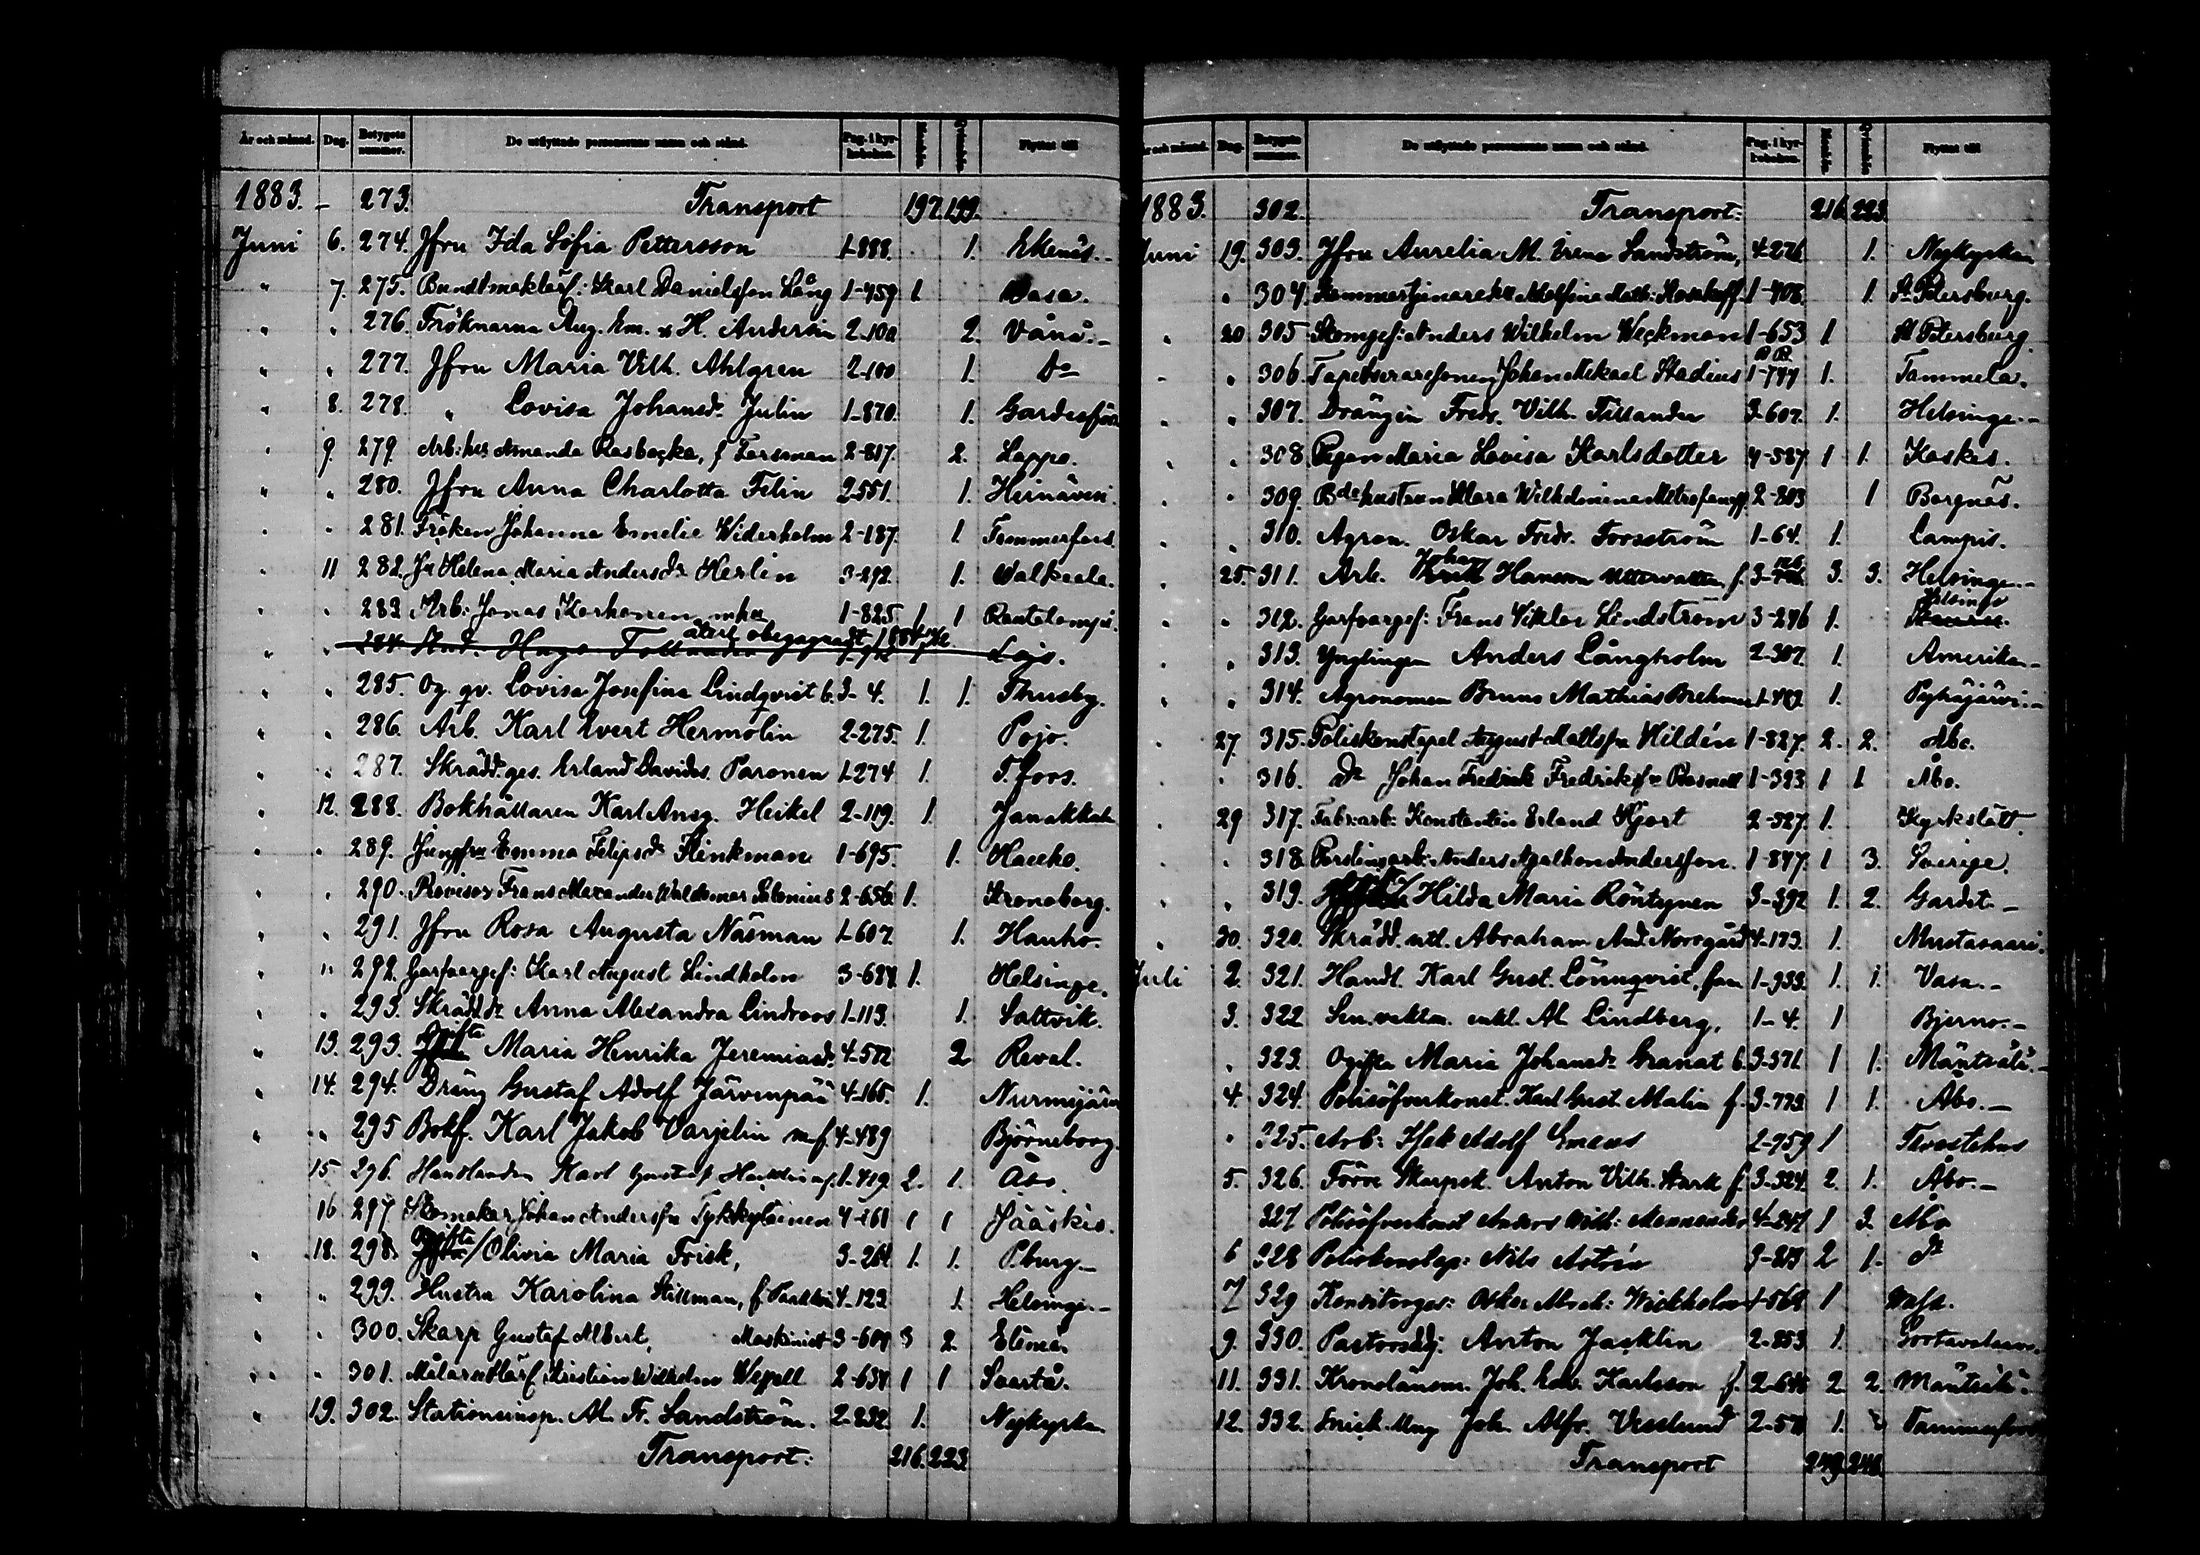 År och månad. Dag. Betygets nummer. De utflyttade personernas namn och stånd. Pag. i kyrkoboken. Mankön. Qvinkön. Flyttat till
1883. - 273. Transport 197. 199.
Juni 6. 274. Jfru Ida Sofia Pettersson 1-888. 1. Ekenäs.-
" 7. 275. Karl Danielsson Lång 1-759 1. Vasa.
" " 276. Fröknarna Aug. Em. & H. Andersin 2-100 2. Vånå.-
" " 277. Jfru Maria Vilh. Ahlgren 2-100 1. Do
" 8. 278. " Lovisa Johansdr Julin 1-870. 1. Gardesförs.
" 9. 279 Arb: hu Amanda Rasbacka, f Forsman 2-817. 2. Lappo.
" " 280. Jfru Anna Charlotta Felin 2-551. 1. Heinävesi.
" " 281. Fröken Johanna Emelie Widerholm 2-187. 1. Tammerfors.
" 11 282. Jfr Helena Maria Andersdr Herlin 3-292. 1. Walkeala.
" " 283 Arb: Jonas Korhonen mhu 1-825. 1 1 Rautalampi.
" " 284 Stud. Hugo Tollander återl. obegagnadt 1884 Lojo.
" " 285. Og. qv. Lovisa Josefina Lindqvist b. 3-4. 1. 1. Thusby.
" " 286. Arb. Karl Evert Hermolin 2-275. 1. Pojo.
" " 287. Skrädd. ges. Erland Davids. Paronen 1-274 1. T.fors.
" 12. 288. Bokhållaren Karl Ansg. Heikel 2-119. 1. Janakkala
" " 289. Jungfru Emma Filipsdr Flinkman 1-695. 1. Hauho.
" " 290. Provisor Frans Alexander Waldemar Selonius 2-656 1. Kronoborg.
" " 291. Jfru Rosa Augusta Näsman 1-607. 1. Hauho.
" " 292. Garfvargef: Karl August Lindholm 3-684 1. Helsinge.
" " 293. Skrädd. dr Anna Alexandra Lindroos 1-113. 1. Saltvik.
" 13. 293. Ogifta Maria Henrika Jeremiasdr 4-572 2 Reval.
" 14. 294. Dräng Gustaf Adolf Järvenpää 4-165. 1. Nurmijärvi
" " 295 Bokf. Karl Jakob Varjelin m f. 4-489 Björneborg.
15 296. Handlanden Karl Gustaf f. 1-719. 2. 1. Åbo.
16 297 Skomakar Johan Andersson Tykkyläinen 4-161 1 1 Jääskis.
" 18. 298. Ogifta Olivia Maria Frisk, 3-264 1. 1. P.burg.-
" " 299. Hustru Karolina Stillman, f. 4-123 1. Helsinge.-
" " 300. Skarp Gustaf Albert, Maskinist 3-609 3 2. Elimä.
" " 301. Målaremäst Kristian Wilhelm Wegell 2-634 1 1 Snartå.
" 19. 302. Stationsinsp. Al. Fr. Sandström. 2-232 1. Nykyrka.
Transport: 216. 223.
År och månad. Dag. Betygets nummer. De utflyttade personernas namn och stånd. Pag. i kyrkoboken. Mankön. Qvinkön. Flyttat till
1883. 302. Transport: 216. 223.
Juni 19. 303. Jfru Aurelia M. Irene Sandström, 4-276 1. Nykyrka
" 304. Adolfina Math: 1-408. 1. St Petersburg.
" 20 305 Skomgef: Anders Wilhelm Weckman 1-653 1 St Petersburg.
" " 306. Johan Mikael Stadius 1-744 1. Tammela.
" " 307. Drängen Fredr. Vilh. Tillander 3-607. 1. Helsinge.-
" " 308. Pigan Maria Lovisa Karlsdotter 4-587 1 1. Kaskes.
" " 309. Bdehustrun Wilhelmina 2-803 1 Borgnäs.
" 310. Agron. Oskar Fredr. Forsström 1-64. 1. Lampis.
" 25. 311. Arb. Johan Hanson f. 3. 3. Helsinge.-
" " 312. Garfvargef: Frans Viktor Lindström 3-296 1. Helsinge
" " 313. Ynglingen Anders Långholm 2-307. 1. Amerika.-
" " 314. Agronomen Bruno Mathias Brehmer 1-. 1. Pyhäjärvi.-
" 27 315. Poliskonstapel August Mattsson Hildén 1-827. 2. 2. Åbo.
" " 316. Do Johan Fredrik Fredriksson 1-393 1 1 Åbo.
" 29 317. Fabr:arb: Konstantin Erland Hjort 2-527. 1. Kyrkslätt.
" " 318 Porslinsarb: Anders Andersson. 1-847. 1 3. Sverige.
" " 319. Hilda Maria Röntynen 3-392 1. 2. Gardst.-
" 30. 320. Skrädd. utl. Abraham And. Norrgård 4-173. 1. Mustasaari.
Juli 2. 321. Handl. Karl Gust. Lönnqvist, fam 1-933. 1. 1. Vasa.-
3. 322 Sen.vaktm. enkl. Al Lindberg, 1-4. 1 Bjerno.-
" 323. Ogifta Maria Johansdr Granat b. 3-371 1 1. Mäntsälä.-
4. 324. Polisöfverkonst. Karl Gust. Malin f. 3-773. 1 1. Åbo.-
" 325. Arb: Isak Adolf Emeus 2-759 1 Tavastehus
5. 326. Förre Skarpsk. Anton Vilh. Stark f. 3-324. 2. 1. Åbo.-
327 Polisöfverkonst Anders Wilh: Mennander 4-247 1 3. Åbo
6 328 Poliskonstap: Nils Åström 3-213 2 1. do
7 329 Konditorges: Oskar Wickholm 1-564 1 Wasa.
9. 330. Pastorsadj: Anton Jacklin 2-253 1. Sortavala.
11. 331. Kronolänsm. Joh. Edv. Karlsson f. 2-648 2. 2. Mäntsälä.
12. 332. Joh. Alfr. Vesslund 2-571 1. Tammerfors
Transport 249. 248.